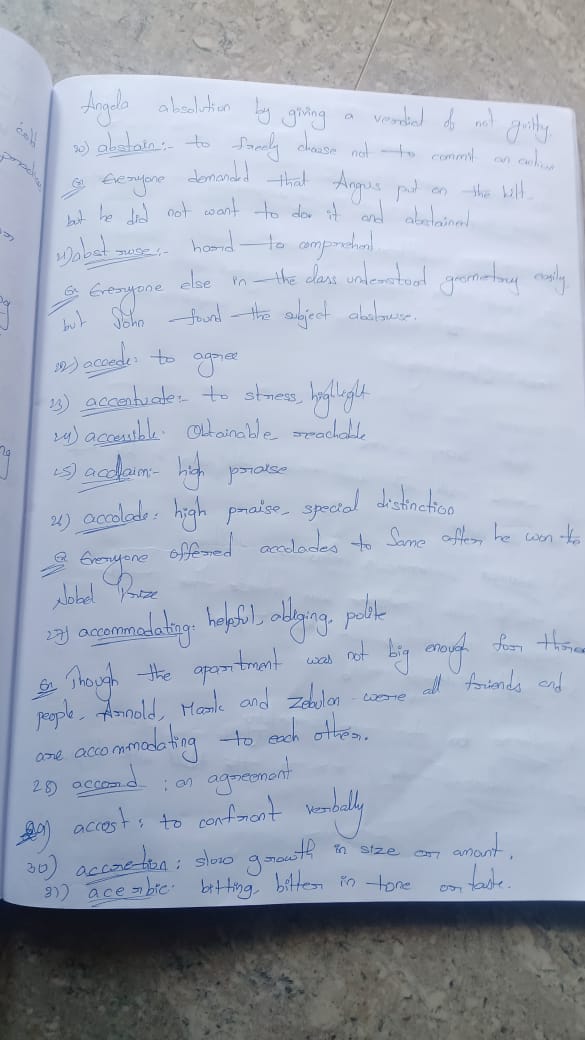 Angela absolution by giving a verdict of not guilty.
20) abstain:- to freely choose not to commit an action
Ex Everyone demanded that Angus put on the kilt
but he did not want to do it and abstained
21) abstruse:- hard to comprehend
Ex Everyone else in the class understood geometry easily
but John found the subject abstruse.
22) accede: to agree
23) accentuate:- to stress, highlight
24) accessible: Obtainable, reachable
25) acclaim:- high praise
26) accolade: high praise, special distinction
Ex Everyone offered accolades to Same after he won the
Nobel Prize
27) accommodating: helpful, obliging, polite
Ex Though the apartment was not big enough for three
people, Arnold, Mark and Zebulon were all friends and
are accommodating to each other.
28) accord : an agreement
29) accost: to confront verbally
30) accretion: slow growth in size or amant.
31) acerbic: bitting, bitter in tone or taste.